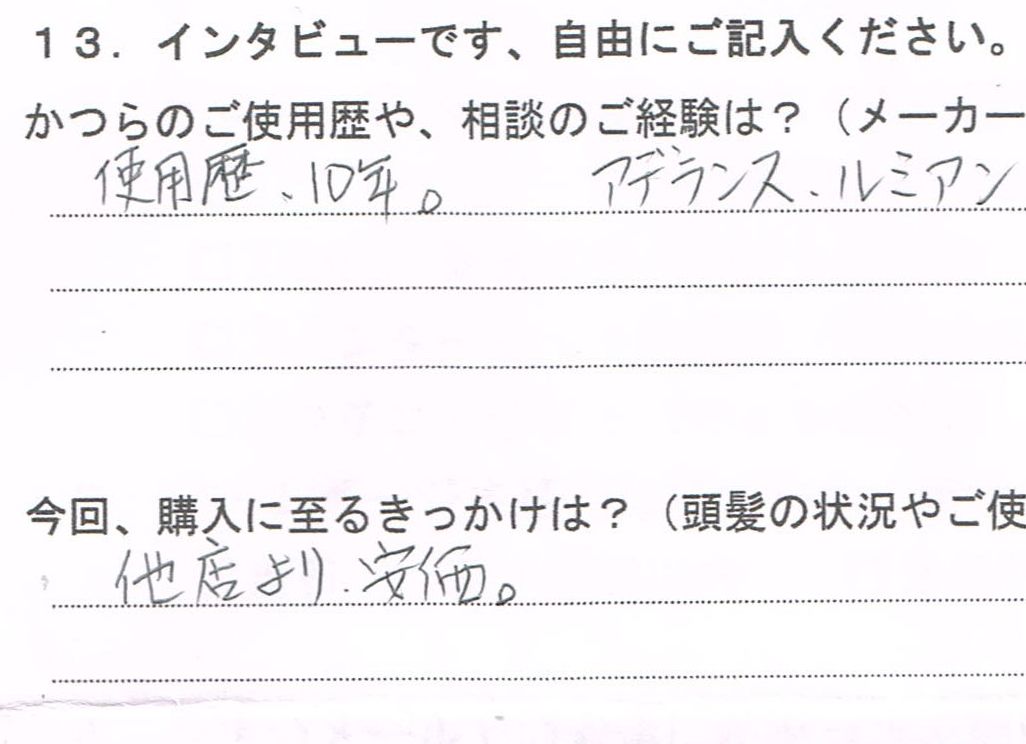 １３．インタビューです、自由にご記入ください。
かつらのご使用歴や、相談のご経験は？（メーカー
使用歴、10年。　アデランス、ルミアン
今回、購入に至るきっかけは？（頭髪の状況やご使
他店より、安価。